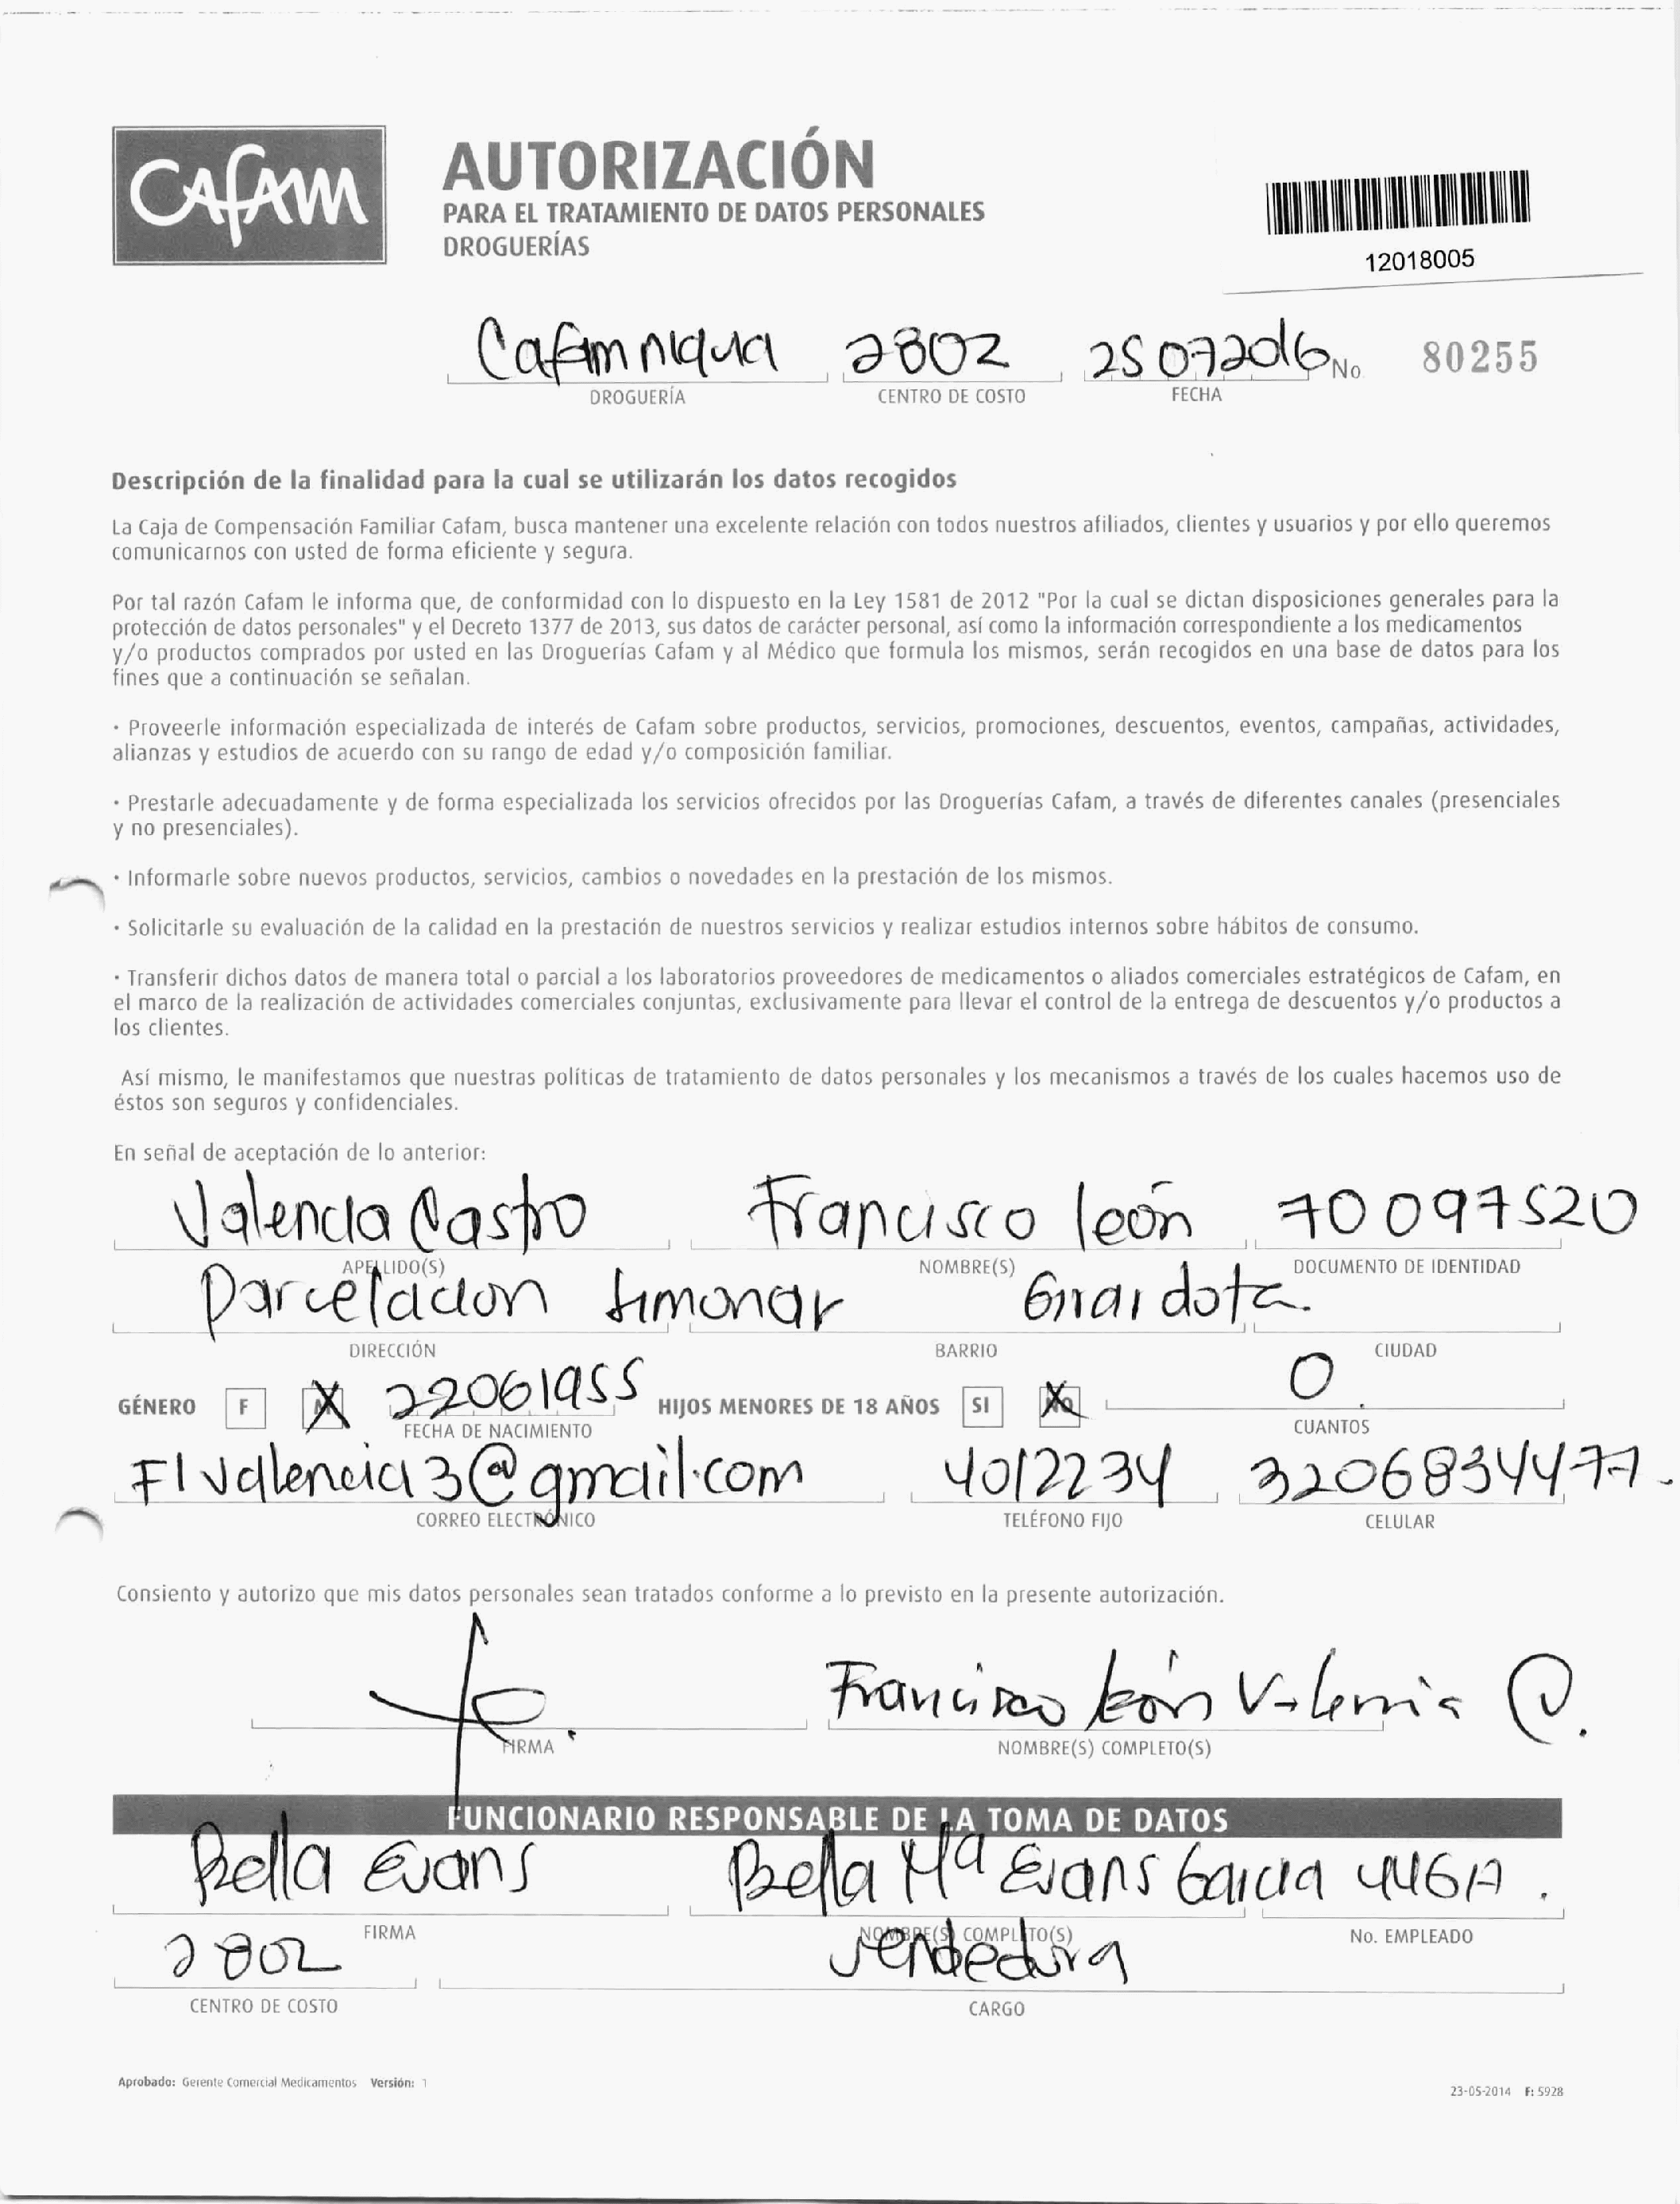 CAFAM
AUTORIZACIÓN
PARA EL TRATAMIENTO DE DATOS PERSONALES
DROGUERÍAS
12018005
Cafam niquia 2802 25072016 No 80255
DROGUERÍA CENTRO DE COSTO FECHA
Descripción de la finalidad para la cual se utilizarán los datos recogidos
La Caja de Compensación Familiar Cafam, busca mantener una excelente relación con todos nuestros afiliados, clientes y usuarios y por ello queremos
comunicarnos con usted de forma eficiente y segura.
Por tal razón Cafam le informa que, de conformidad con lo dispuesto en la Ley 1581 de 2012 "Por la cual se dictan disposiciones generales para la
protección de datos personales" y el Decreto 1377 de 2013, sus datos de carácter personal, así como la información correspondiente a los medicamentos
y/o productos comprados por usted en las Droguerías Cafam y al Médico que formula los mismos, serán recogidos en una base de datos para los
fines que a continuación se señalan.
· Proveerle información especializada de interés de Cafam sobre productos, servicios, promociones, descuentos, eventos, campañas, actividades,
alianzas y estudios de acuerdo con su rango de edad y/o composición familiar.
· Prestarle adecuadamente y de forma especializada los servicios ofrecidos por las Droguerías Cafam, a través de diferentes canales (presenciales
y no presenciales).
· Informarle sobre nuevos productos, servicios, cambios o novedades en la prestación de los mismos.
· Solicitarle su evaluación de la calidad en la prestación de nuestros servicios y realizar estudios internos sobre hábitos de consumo.
· Transferir dichos datos de manera total o parcial a los laboratorios proveedores de medicamentos o aliados comerciales estratégicos de Cafam, en
el marco de la realización de actividades comerciales conjuntas, exclusivamente para llevar el control de la entrega de descuentos y/o productos a
los clientes.
Así mismo, le manifestamos que nuestras políticas de tratamiento de datos personales y los mecanismos a través de los cuales hacemos uso de
éstos son seguros y confidenciales.
En señal de aceptación de lo anterior:
Valencia Castro Francisco león 70097520
APELLIDO(S) NOMBRE(S) DOCUMENTO DE IDENTIDAD
Parcelacion Girardota.
DIRECCIÓN BARRIO CIUDAD
GÉNERO F M 22061955 HIJOS MENORES DE 18 AÑOS SI NO 0
FECHA DE NACIMIENTO CUANTOS
Flvalencia3@gmail.com 4012234 3206834477-
CORREO ELECTRÓNICO TELÉFONO FIJO CELULAR
Consiento y autorizo que mis datos personales sean tratados conforme a lo previsto en la presente autorización.
Francisco león Valencia C.
FIRMA NOMBRE(S) COMPLETO(S)
FUNCIONARIO RESPONSABLE DE LA TOMA DE DATOS
Bella Evans Bella Mª Evans Garcia 446A.
FIRMA NOMBRE(S) COMPLETO(S) No. EMPLEADO
2802 vendedora
CENTRO DE COSTO CARGO
Aprobado: Gerente Comercial Medicamentos Versión: 1
23-05-2014 F: 5928